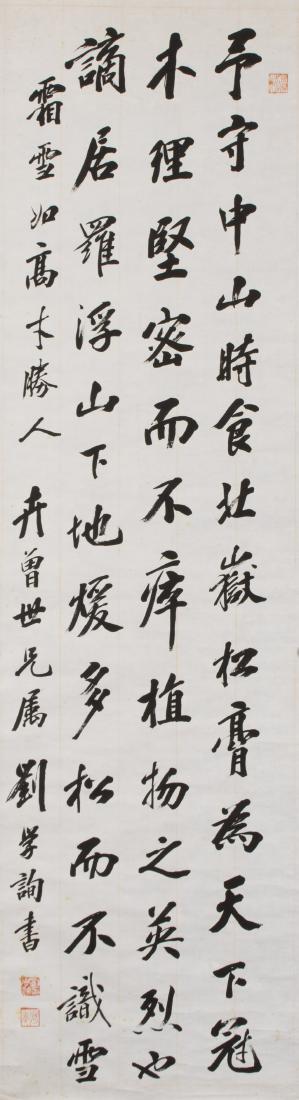 予守中山時食北嶽松膏為天下冠
木理堅密而不瘁植物之英烈也
謫居羅浮山下地煖多松而不識雪
霜雪如高才勝人 卉曾世兄屬 劉學詢書